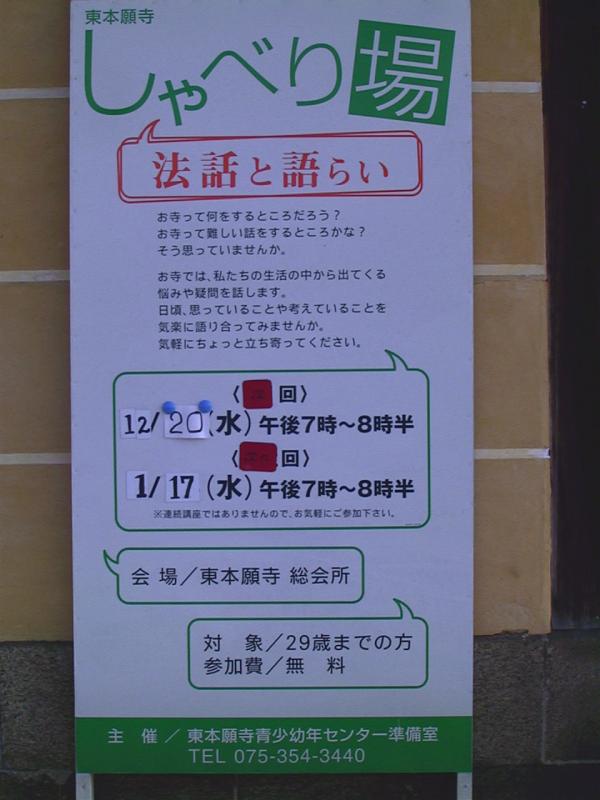 東本願寺
しゃべり場
法話と語らい
お寺って何をするところだろう？
お寺って難しい話をするところかな？
そう思っていませんか。
お寺では、私たちの生活の中から出てくる
悩みや疑問を話します。
日頃、思っていることや考えていることを
気楽に語り合ってみませんか。
気軽にちょっと立ち寄ってください。
〈 回〉
12/20(水)午後7時～8時半
〈 回〉
1/17(水)午後7時～8時半
※連続講座ではありませんので、お気軽にご参加下さい。
会 場／東本願寺 総会所
対 象／29歳までの方
参加費／無 料
主 催 ／ 東本願寺青少幼年センター準備室
TEL 075-354-3440